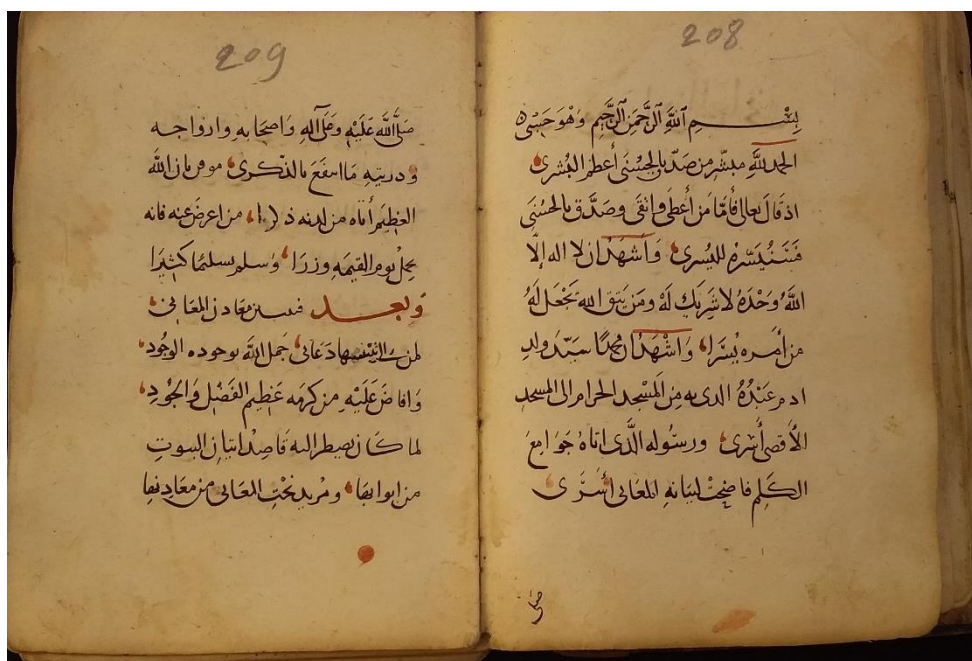 208
بِسْمِ اللَّهِ الرَّحْمَنِ الرَّحِيمِ وَهُوَ حَسْبِي
الحمد للَّهِ مبشر من صدّ بالحُسْنَى أعظم البُشرى
اذ قَالَ تعالى فَأَمَّا مَن أَعطَى وَاتقَى وصَدَّق بالحُسْنَى
فَسَنُيَسِّرهُ لليُسرى وَأشهَدُ ان لا اله إلّا
اللَّهُ وَحْدَهُ لا شَرِيك لَهُ ومَن يَتق الله يَجْعَل لَهُ
من أَمره يُسْرًا وَاشْهَدُ ان محمدًا سَيّد ولد
ادم عَبْدُهُ الدى به مِن المَسْجد الحرام الى المسجد
الأقصى أَسْرى ورسُوله الَّذى اتاهُ جَوَامِعَ
الكَلِم فاضحَتْ لبيَانهِ المعَانى أَسْرَى
صَلى
209
صَلَّى اللَّه عَلَيْهِ وَعَلَى آلِهِ وَاصحَابهِ وازواجه
ودريتِهِ مَا انتفعَ بالذّكرى موقن بان اللَّهَ
العَظيم أتاه من لدنه ذكرا من اعرضَ عنه فانه
يحمِلُ يوم القيمَهِ وِزرًا وسلم تسليمًا كثيرًا
وَبعد فمن معَادن المعَانى
لمن دعَانى جَمل اللَّه بوجوده الوجُود
وَافاضَ عَلَيْهِ من كرمهِ عَظِيم الفَضْل وَالجُودِ
لما كَان يضطر اليه قَاصِد اتيان البيوتِ
من ابوابهَا ومُريد نَحْتِ المعَانى من معَادنها